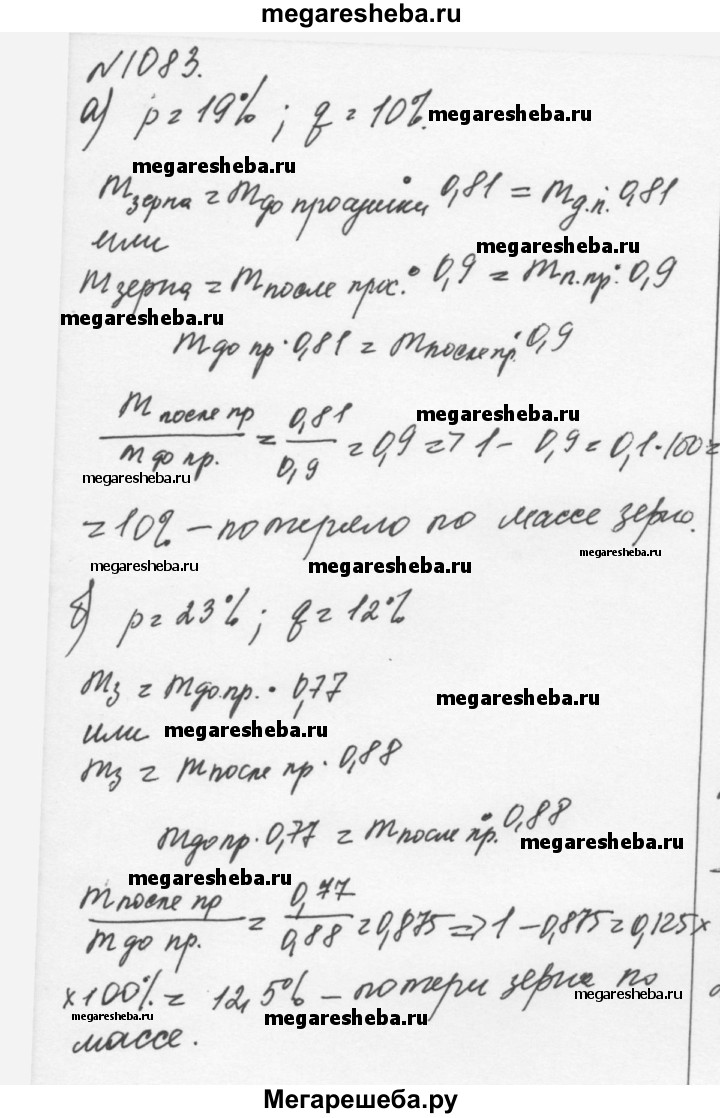 megaresheba.ru
N1083.
а) p = 19% ; q = 10%. megaresheba.ru
megaresheba.ru
m зерна = m до просушки · 0,81 = m д.п. · 0,81
или megaresheba.ru
m зерна = m после прос. · 0,9 = m п.пр. · 0,9
megaresheba.ru
m до пр · 0,81 = m после пр. · 0,9
m после пр / m до пр. = 0,81 / 0,9 = 0,9 => 1 - 0,9 = 0,1 · 100 =
megaresheba.ru
megaresheba.ru
= 10% – потеряло по массе зерно.
megaresheba.ru
megaresheba.ru megaresheba.ru
б) p = 23% ; q = 12%
mз = m до.пр. · 0,77
megaresheba.ru
или megaresheba.ru
mз = m после пр · 0,88
m до пр. · 0,77 = m после пр. · 0,88
megaresheba.ru
megaresheba.ru
m после пр / m до пр. = 0,77 / 0,88 = 0,875 => 1 - 0,875 = 0,125 ×
× 100% = 12,5% – потери зерна по
megaresheba.ru
megaresheba.ru megaresheba.ru
массе.
Мегарешеба.ру